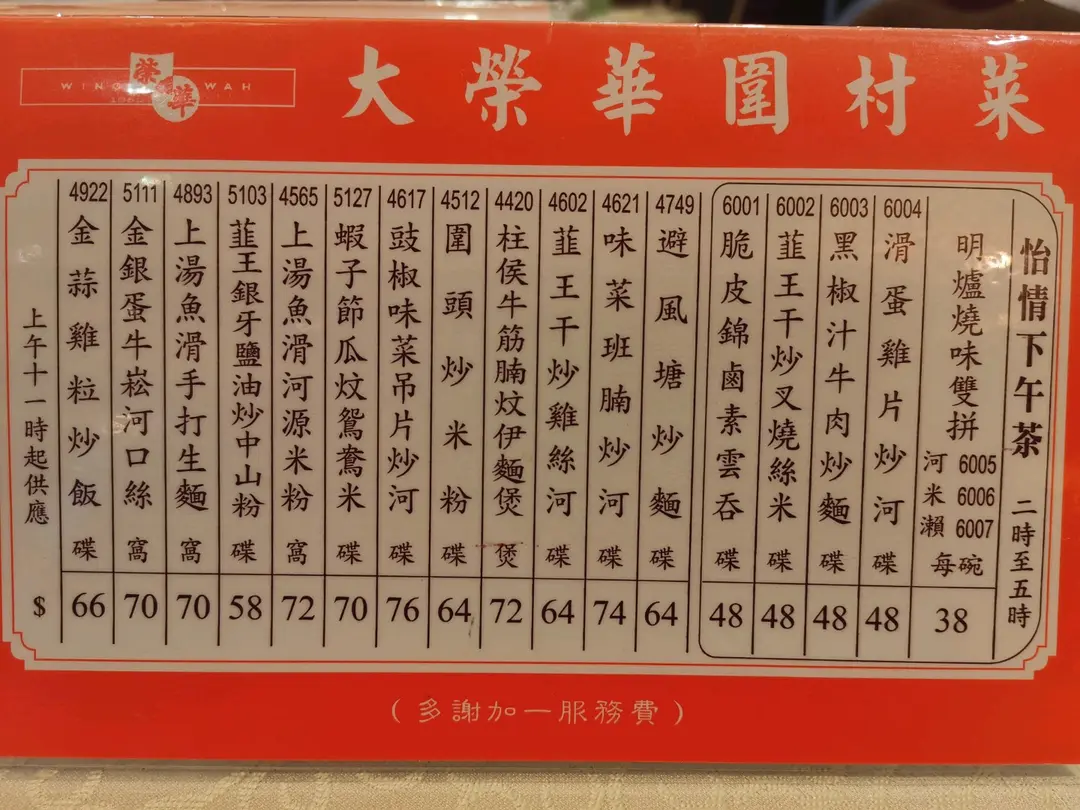 榮華
WING WAH
大榮華圍村菜
怡情下午茶 二時至五時
明爐燒味雙拼
河 6005
米 6006
瀨 6007
每碗
38
6004 滑蛋雞片炒河 碟 48
6003 黑椒汁牛肉炒麵 碟 48
6002 韮王干炒叉燒絲米 碟 48
6001 脆皮錦鹵素雲吞 碟 48
4749 避風塘炒麵 碟 64
4621 味菜班腩炒河 碟 74
4602 韮王干炒雞絲河 碟 64
4420 柱侯牛筋腩炆伊麵煲 煲 72
4512 圍頭炒米粉 碟 64
4617 豉椒味菜吊片炒河 碟 76
5127 蝦子節瓜炆鴛鴦米 碟 70
4565 上湯魚滑河源米粉 窩 72
5103 韮王銀牙鹽油炒中山粉 碟 58
4893 上湯魚滑手打生麵 窩 70
5111 金銀蛋牛崧河口絲 窩 70
4922 金蒜雞粒炒飯 碟 66
上午十一時起供應 $
(多謝加一服務費)